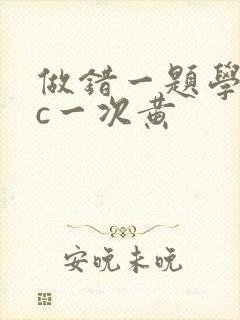 做錯一題學
c一次黃
安晚未晚